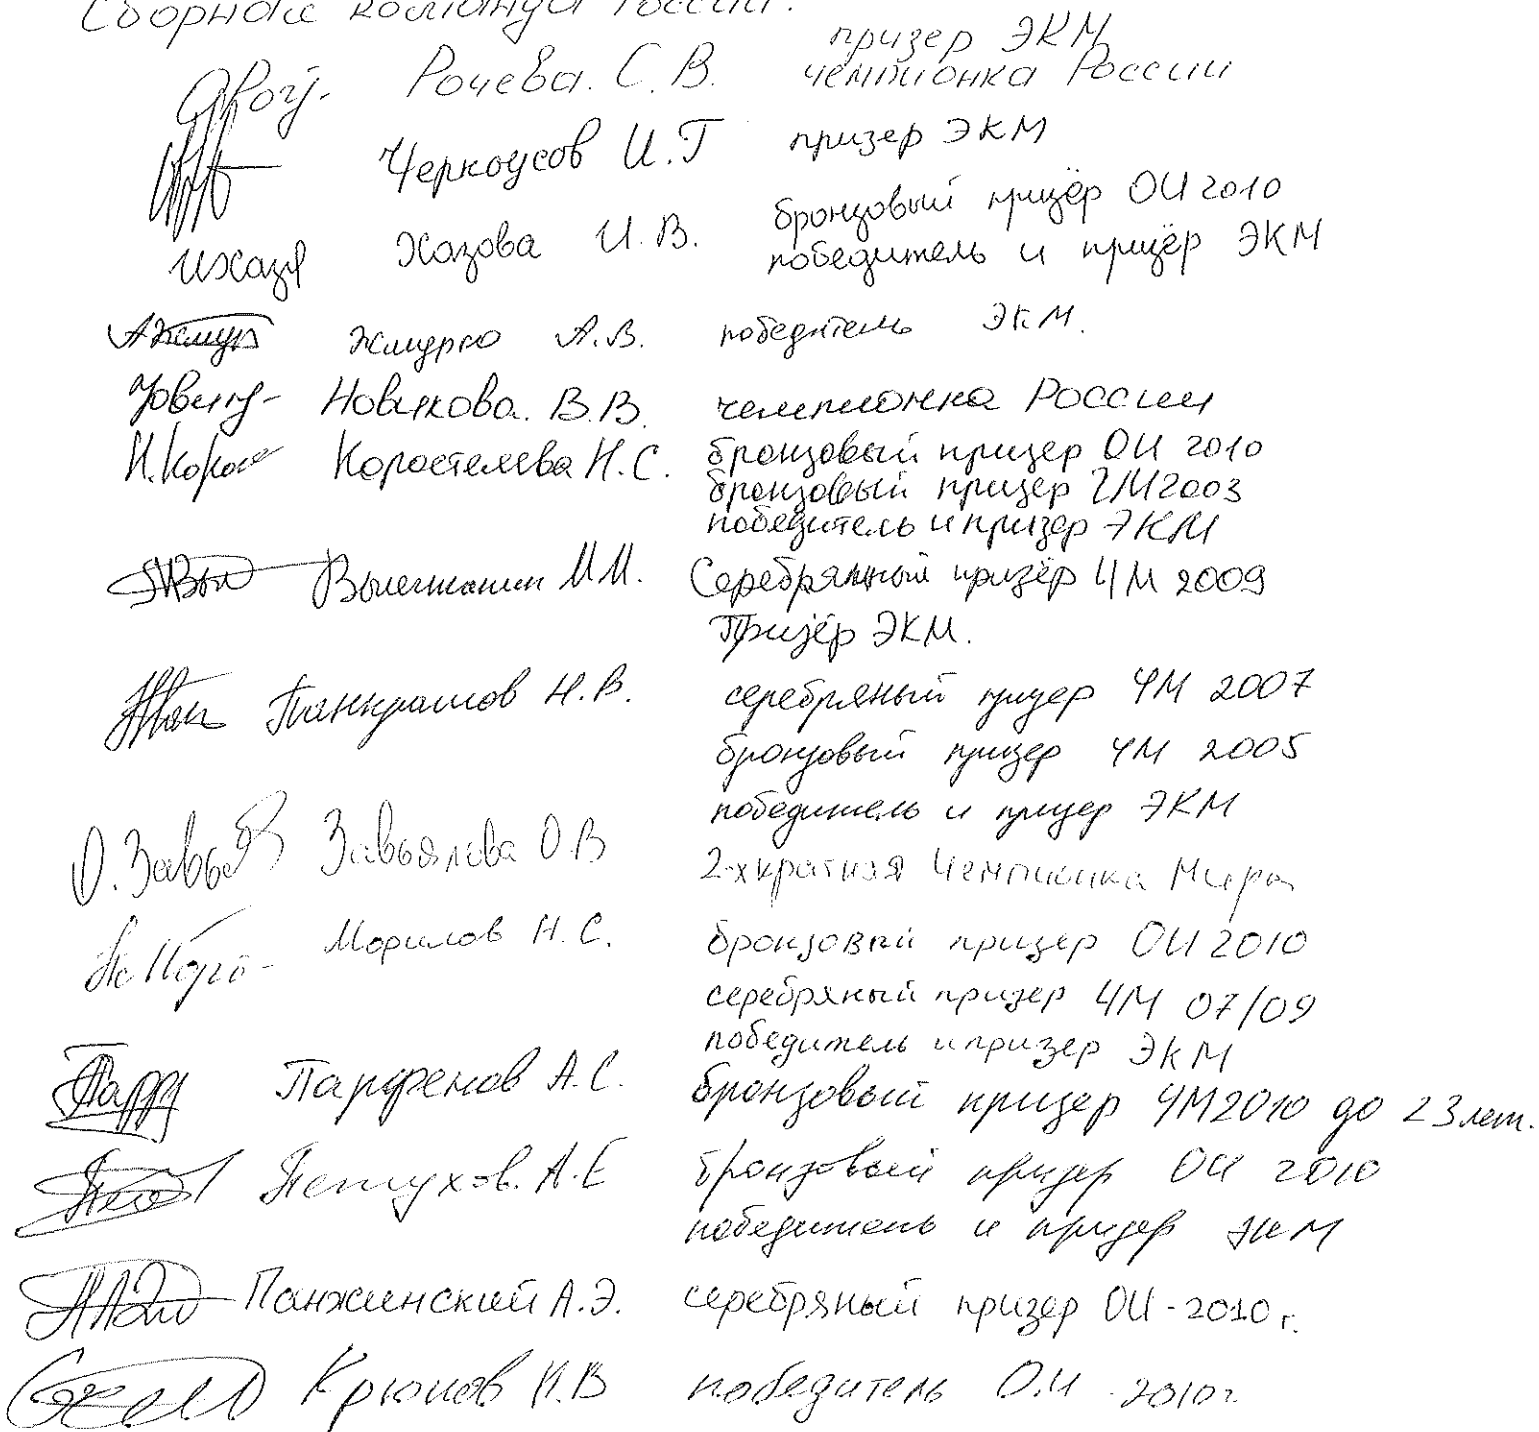 Сборная команда России:
призер ЭКМ
Рочева. С. В. чемпионка России
Черноусов И.Г призер ЭКМ
бронзовый призёр ОИ 2010
ИХазя Хазова И.В. победитель и призёр ЭКМ
АЖмур Жмурко А.В. победитель ЭКМ.
Новикова. В.В. чемпионка России
Н.Коро Коростелева Н.С. бронзовый призер ОИ 2010
бронзовый призер ЧМ2003
победитель и призер ЭКМ
Вылегжанин М.М. Серебрянный призёр ЧМ 2009
Призёр ЭКМ.
Панкратов Н.В. серебряный призер ЧМ 2007
бронзовый призер ЧМ 2005
победитель и призер ЭКМ
О.Завья Завьялова О.В 2-х кратная Чемпионка Мира
Морилов Н.С. бронзовый призер ОИ 2010
серебряный призер ЧМ 07/09
победитель и призер ЭКМ
Парфенов А.С. бронзовый призер ЧМ2010 до 23 лет.
Петухов. А.Е бронзовый призер ОИ 2010
победитель и призер ЭКМ
Панжинский А.Э. серебряный призер ОИ-2010г.
Крюков Н.В победитель О.И 2010г